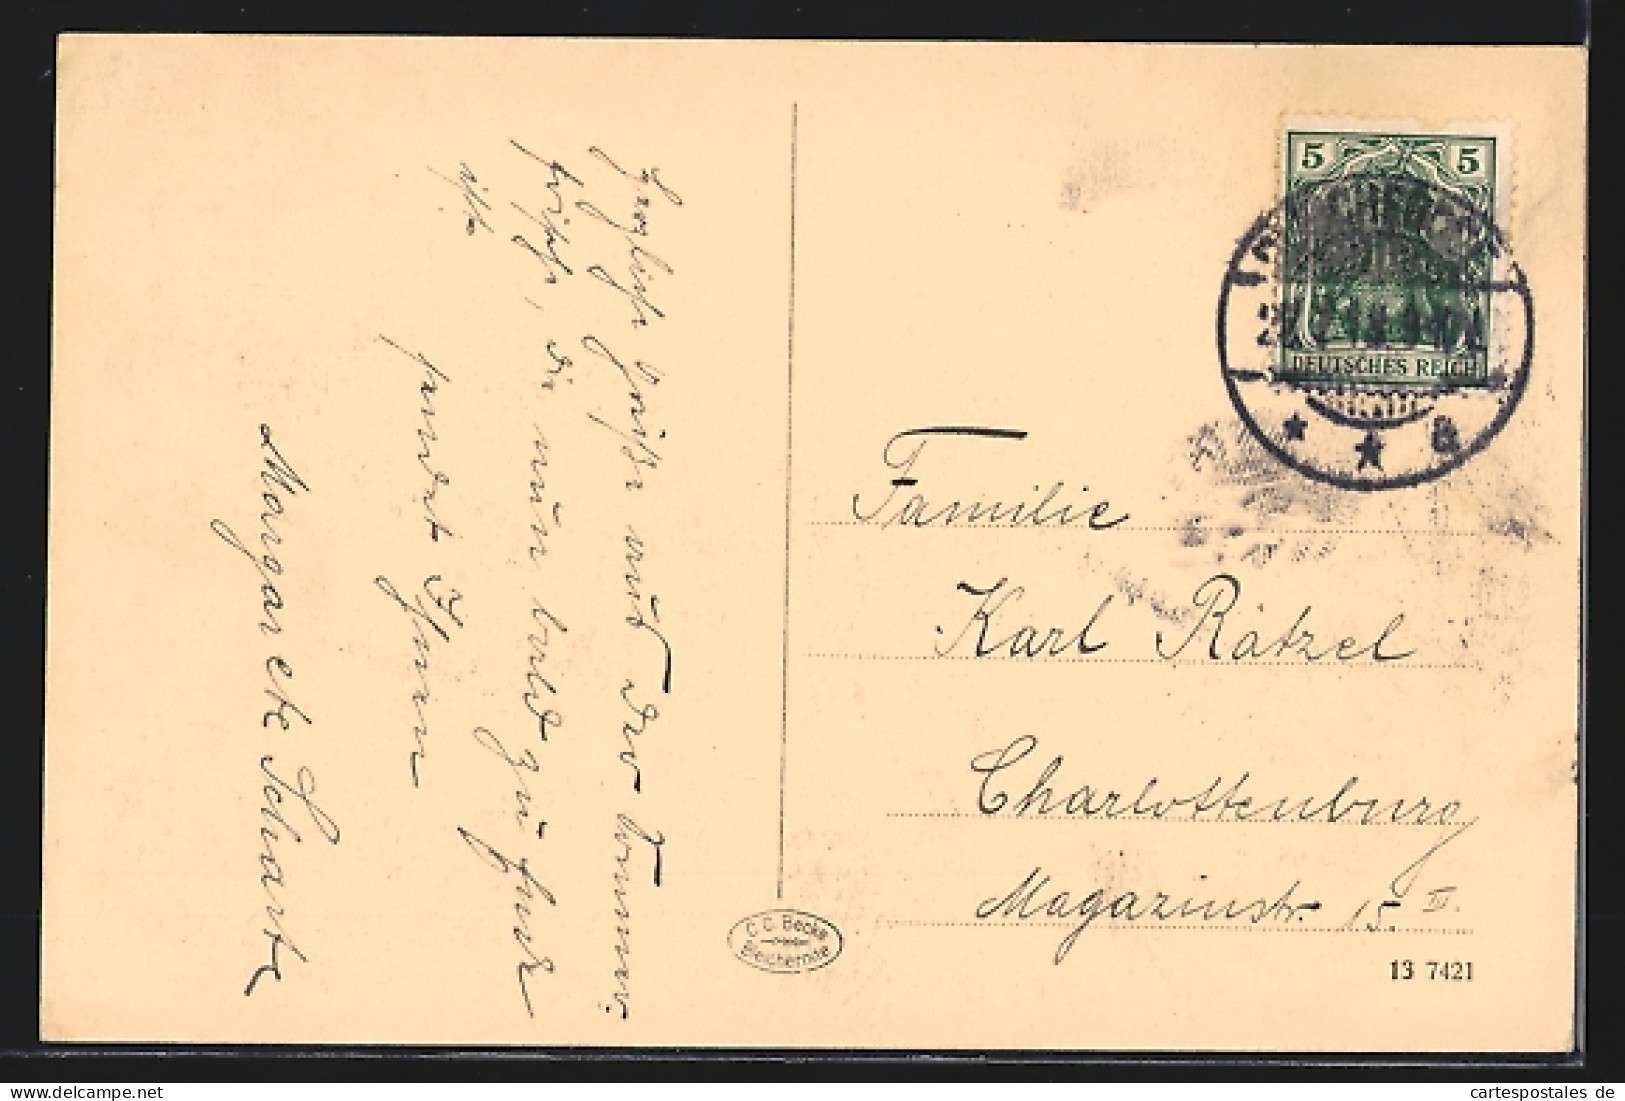 Herzliche Grüße aus der Sommer-
frische, die nun bald zu Ende
ist.
sendet Ihnen
Margarete Scharte
Familie
Karl Rätzel
Charlottenburg
Magazinstr. 15 II.
5 5
DEUTSCHES REICH
* * a
C. C. Becke
Bleicherode
13 7421
www.delcampe.net
cartespostales de